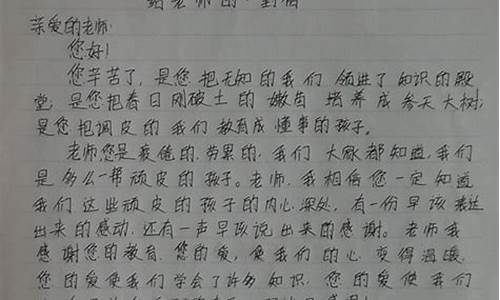 给老师的一封信
亲爱的老师:
您好!
您辛苦了,是您把无知的我们领进了知识的殿
堂,是您把春日刚破土的嫩苗培养成参天大树;
是您把调皮的我们教育成懂事的孩子。
老师,您是疲倦的,劳累的,我们大家都知道,我们
是多么一帮顽皮的孩子。老师,我相信您一定知道
我们这些顽皮的孩子的内心深处,有一份早该表达
出来的感动,还有一声早该说出来的感谢。老师我
感谢您的教育,您的爱,使我们的心变得温暖,
您的爱使我们学会了许多知识,您的爱使我们